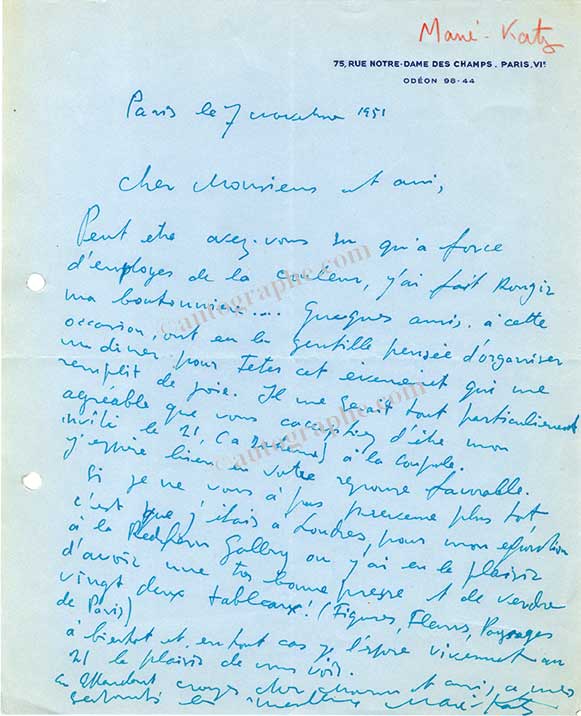 Mané-Katz
75, RUE NOTRE-DAME DES CHAMPS. PARIS. VIe
ODÉON 98-44
Paris le 7 novembre 1951
cher Monsieur et ami,
Peut etre avez-vous su qu'a force
d'employer de la couleur, j'ai fait Rougir
ma boutonniere.... Quelques amis, à cette
occasion, ont eu la gentille pensée d'organiser
un diner pour feter cet evenement qui me
remplit de joie. Il me serait tout particulierement
agréable que vous acceptiez d'être mon
invité le 21, à la coupole.
j'espère bien à votre reponse favorable.
Si je ne vous à pas prevenu plus tot
c'est que j'étais à Londres, pour mon exposition
à la Redfern Gallery ou j'ai eu le plaisir
d'avoir une très bonne presse et de vendre
vingt deux tableaux! (Figures, Fleurs, Paysages
de Paris)
à bientot et, en tout cas je l'espère vivement au
21 le plaisir de vous voir.
En attendant croyez cher monsieur et ami, a mes
sentiments les meilleurs Mané-Katz
©autographe.com
©autographe.com